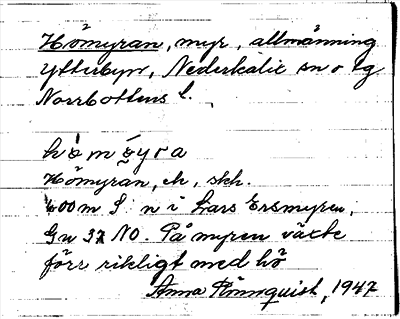 Hömyran, myr, allmänning
Ytterbyn, Nederkalix sn o tg
Norrbottens l.
hömýra
Hömyran, ek, skh.
600 m S n i Lars Ersmyren,
Gu 37 NO. På myren växte
förr rikligt med hö
Anna Rönnquist, 1947